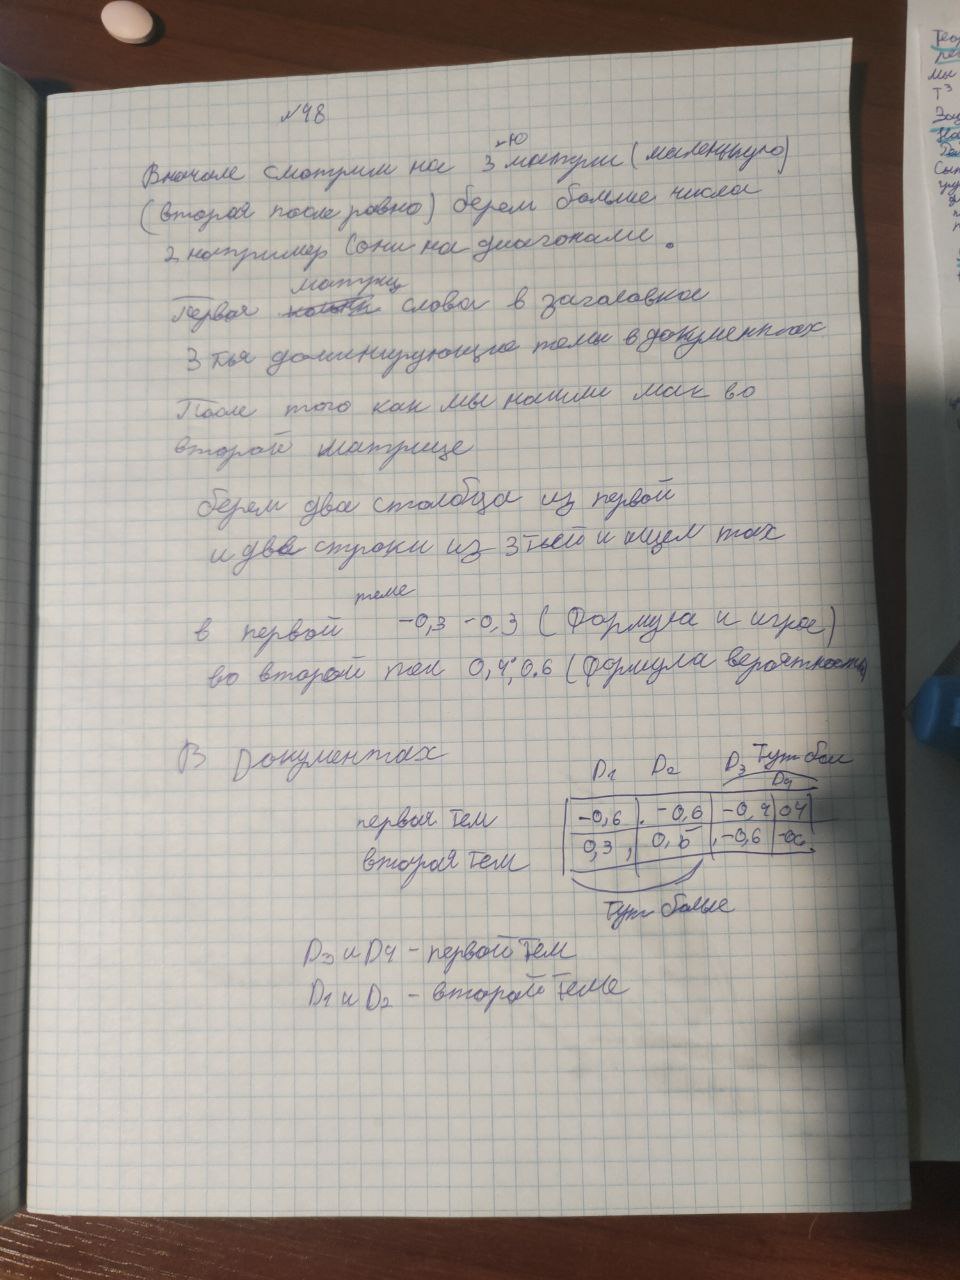 №48
Вначале смотрим на 3-ю матриц (маленькую)
(вторая после равно) берем больше числа
2 например (они на диагонали.
матриц
Первая слова в заголовке
3 тья доминирующие темы в документах
После того как мы нашли мах во
второй матрице
берем два столбца из первой
и две строки из 3тьей и ищем max
теме
в первой -0,3 -0,3 (Формула и игра)
во второй max 0,4; 0.6 (Формула вероятность)
В Документах
D1 D2 D3 D4
первая тем -0,6 -0,6 -0,4 04
вторая тем 0,3 0,5 -0,6
Тут больше
D3 и D4 - первой тем
D1 и D2 - второй теме